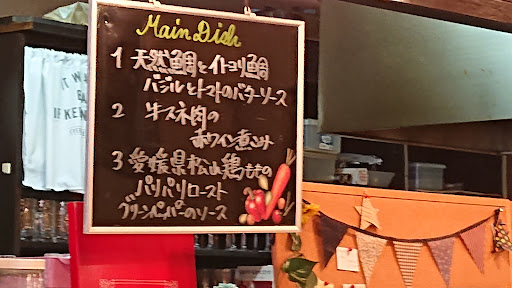 Main Dish
1 天然鯛とイトヨリ鯛
バジルとトマトのバターソース
2 牛スネ肉の
赤ワイン煮こみ
3 愛媛県松山鶏ももの
パリパリロースト
グリーンペーパーのソース